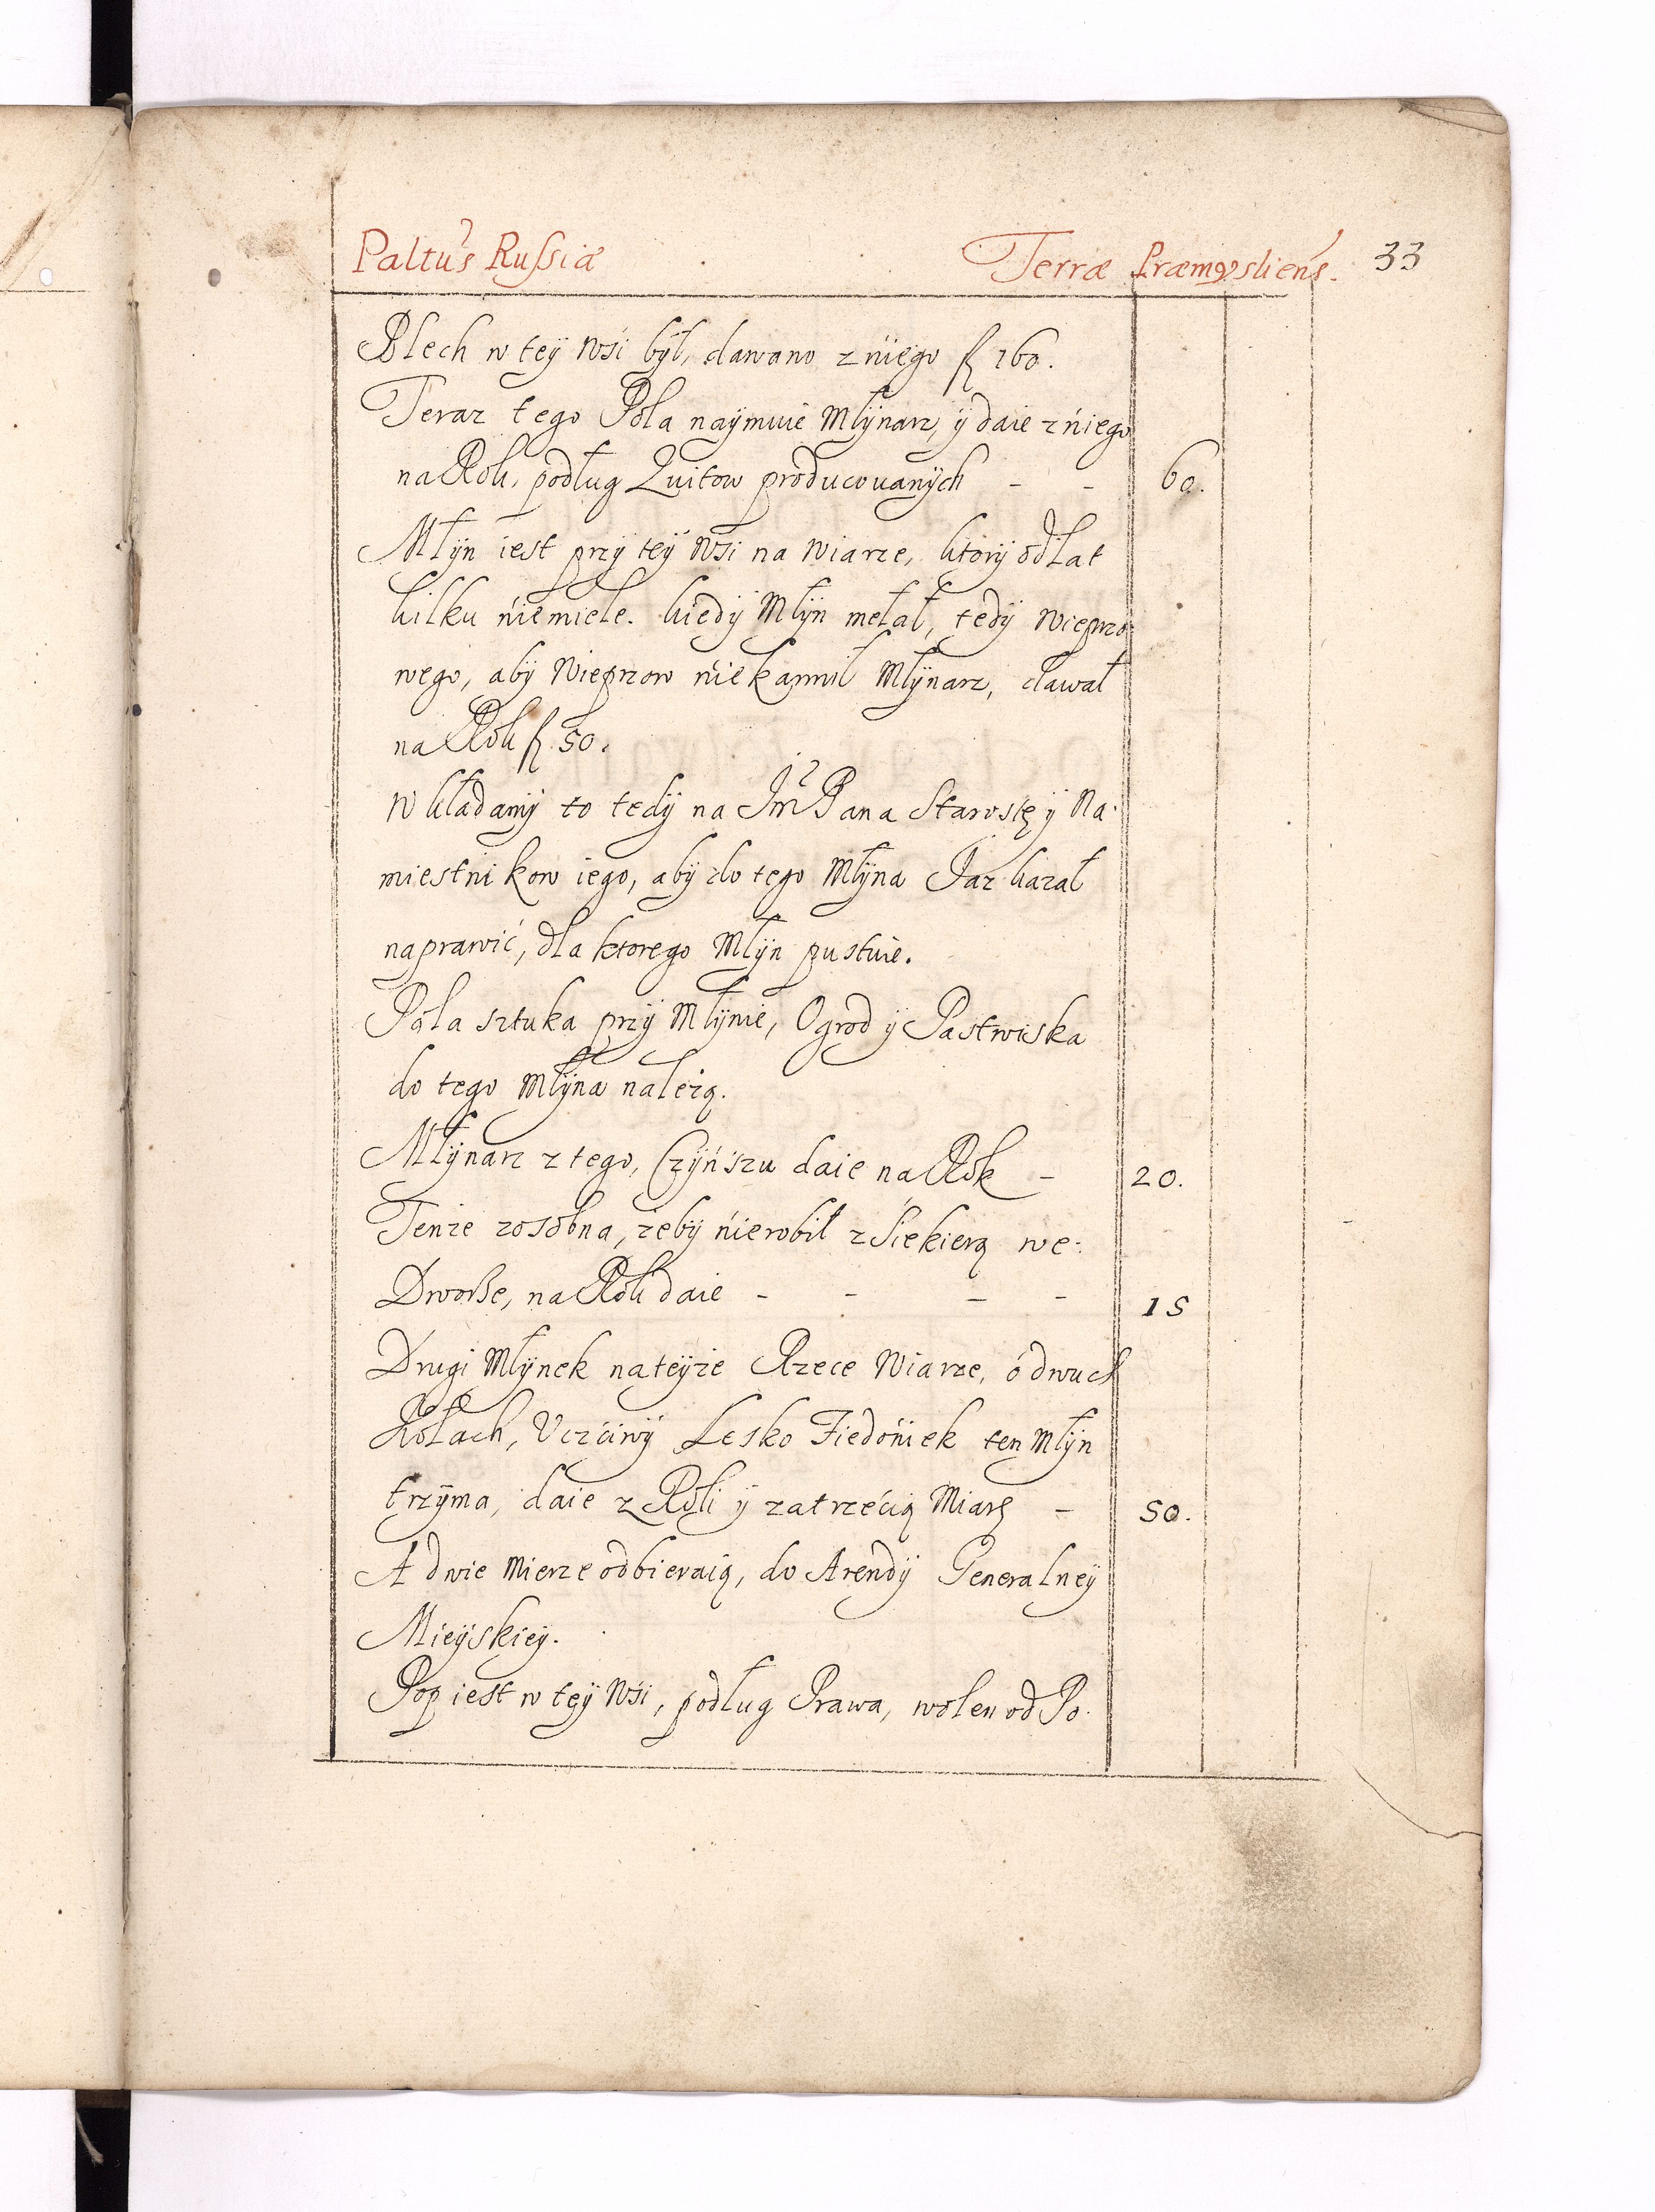 Paltus Russiæ Terræ Præmysliens. 33
Blech w teÿ Wsi bÿł, dawano z niego fl 160.
Teraz tego Pola naÿmuie Młÿnarz, ÿ daie z niego
na Rok, podług Quitow producowanÿch - - 60.
Młÿn iest przÿ teÿ Wsi na Wiarze, ktorÿ od Lat
kilku niemiele. kiedÿ Młÿn mełał, tedÿ Wieprzo-
wego, abÿ Wieprzow niekarmił Młÿnarz, dawał
na Rok fl. 50.
Wkładamÿ to tedÿ na Jm̃ Pana Starostę ÿ Na-
miestnikow iego, abÿ do tego Młÿna Jaz kazał
naprawić, dla ktorego Młÿn pustuie.
Pola sztuka przÿ Młÿnie, Ogrod ÿ Pastwiska
do tego Młÿna naleźą.
Młÿnarz z tego, Czÿńszu daie na Rok - 20.
Tenze zosobna, zebÿ nierobił z Siekierą we-
Dworße, na Rok daie - - - - 15
Drugi Młÿnek na teÿze Rzece Wiarze, o dwuch
Kołach, Vczciwÿ Lesko Fiedoniek ten Młÿn
trzÿma, daie z Roli ÿ za trzecią Miarę - 50.
A dwie Mierze odbieraią, do Arendÿ Generalneÿ
Mieÿskieÿ.
Pop iest w teÿ Wsi, podług Prawa, wolen od Po-